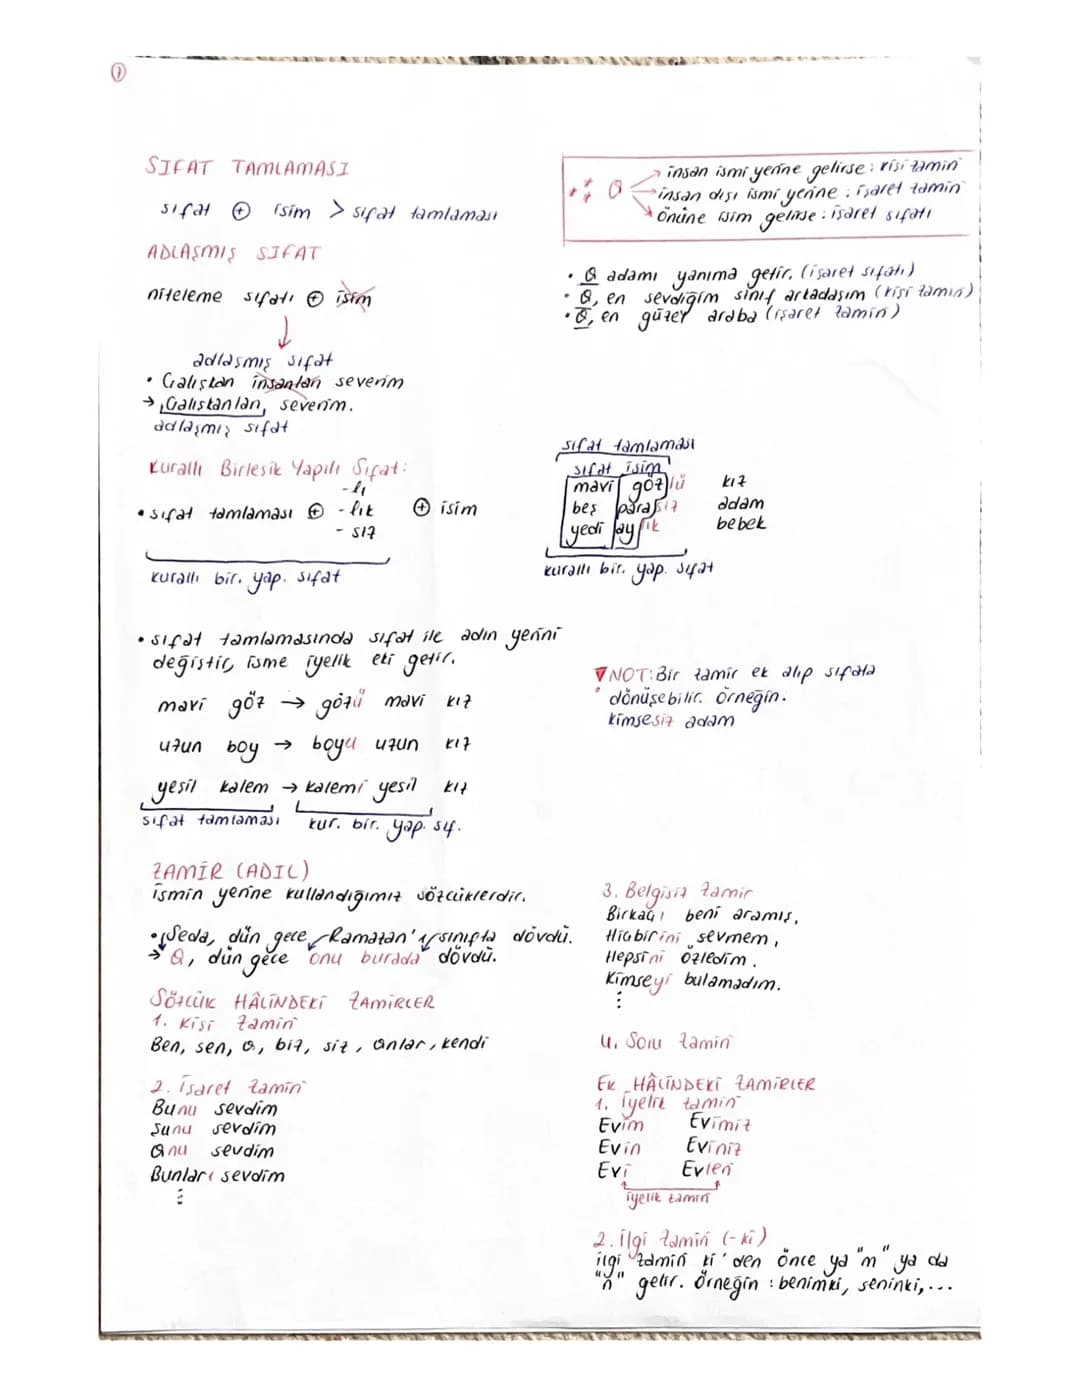 7
SIFAT TAMLAMASI
sıfat ⊕ isim > sıfat tamlaması
ADLAŞMIŞ SIFAT
niteleme sıfatı ⊕ isim
adlaşmış sıfat
• Çalışkan insanları severim
→ Çalışkanları, severim.
adlaşmış sıfat
Kurallı Birleşik Yapılı Sıfat:
-lı
• sıfat tamlaması ⊕ -lık ⊕ isim
- sız
kurallı bir. yap. sıfat
• sıfat tamlamasında sıfat ile adın yerini
değiştir, isme iyelik eki getir.
mavi göz → gözü mavi kız
uzun boy → boyu uzun kız
yeşil kalem → kalemi yeşil kız
sıfat tamlaması kur. bir. yap. sıf.
ZAMİR (ADIL)
ismin yerine kullandığımız sözcüklerdir.
• Seda, dün gece Ramazan'ı sınıfta dövdü.
→ O, dün gece onu burada dövdü.
SÖZCÜK HÂLİNDEKİ ZAMİRLER
1. Kişi Zamiri
Ben, sen, o, biz, siz, onlar, kendi
2. İşaret Zamiri
Bunu sevdim
Şunu sevdim
Onu sevdim
Bunları sevdim
⋮
O → insan ismi yerine gelirse: kişi zamiri
→ insan dışı ismi yerine : işaret zamiri
→ Önüne isim gelirse: işaret sıfatı
• O adamı yanıma getir. (işaret sıfatı)
• O, en sevdiğim sınıf arkadaşım (kişi zamiri)
• O, en güzel araba (işaret zamiri)
sıfat tamlaması
sıfat isim
mavi gözlü kız
beş parasız adam
yedi aylık bebek
kurallı bir. yap. sıfat
NOT: Bir zamir ek alıp sıfata
dönüşebilir. örneğin.
kimsesiz adam
3. Belgisiz Zamir
Birkaçı beni aramış,
Hiçbirini sevmem,
Hepsini özledim.
Kimseyi bulamadım.
⋮
4. Soru Zamiri
EK HÂLİNDEKİ ZAMİRLER
1. İyelik zamiri
Evim Evimiz
Evin Eviniz
Evi Evleri
iyelik zamiri
2. İlgi Zamiri (-ki)
ilgi zamiri ki'den önce ya "m" ya da
"n" gelir. Örneğin : benimki, seninki,...